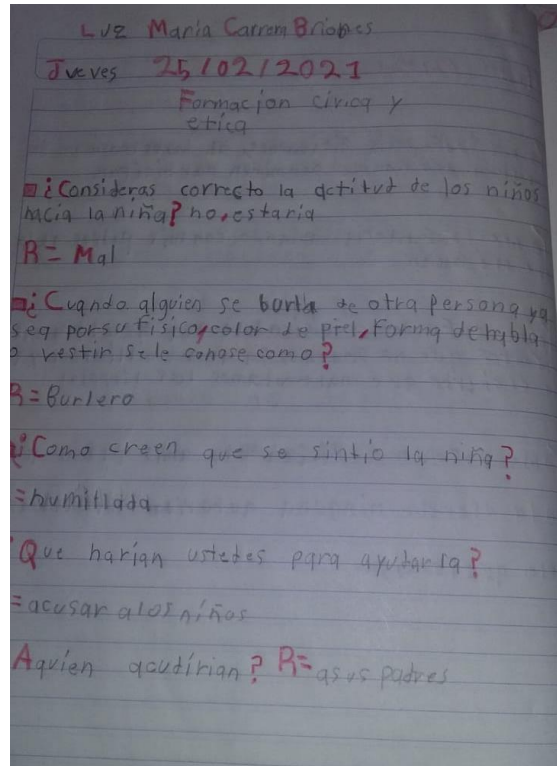 Luz Maria Carrom Briones
Jueves 25/02/2021
Formacion civica y
etica
¿Consideras correcto la actitud de los niños
hacia la niña? no, estaria
R= Mal
¿Cuando alguien se burla de otra persona ya
sea por su fisico, color de piel, forma de habla
o vestir se le conose como?
R= Burlero
¿Como creen que se sintio la niña?
= humillada
Que harian ustedes para ayudarla?
= acusar a los niños
Aquien acudirian? R= asus padres